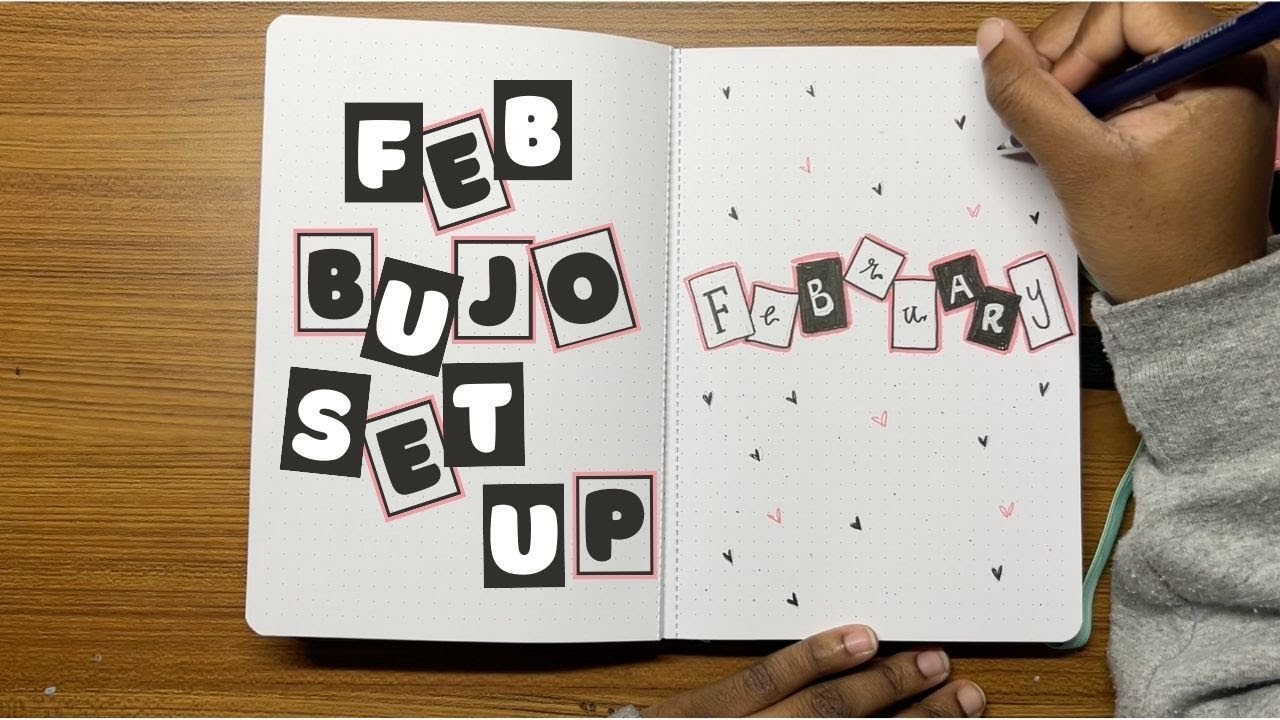 FEB
BUJO
SET
UP
FeBruARy